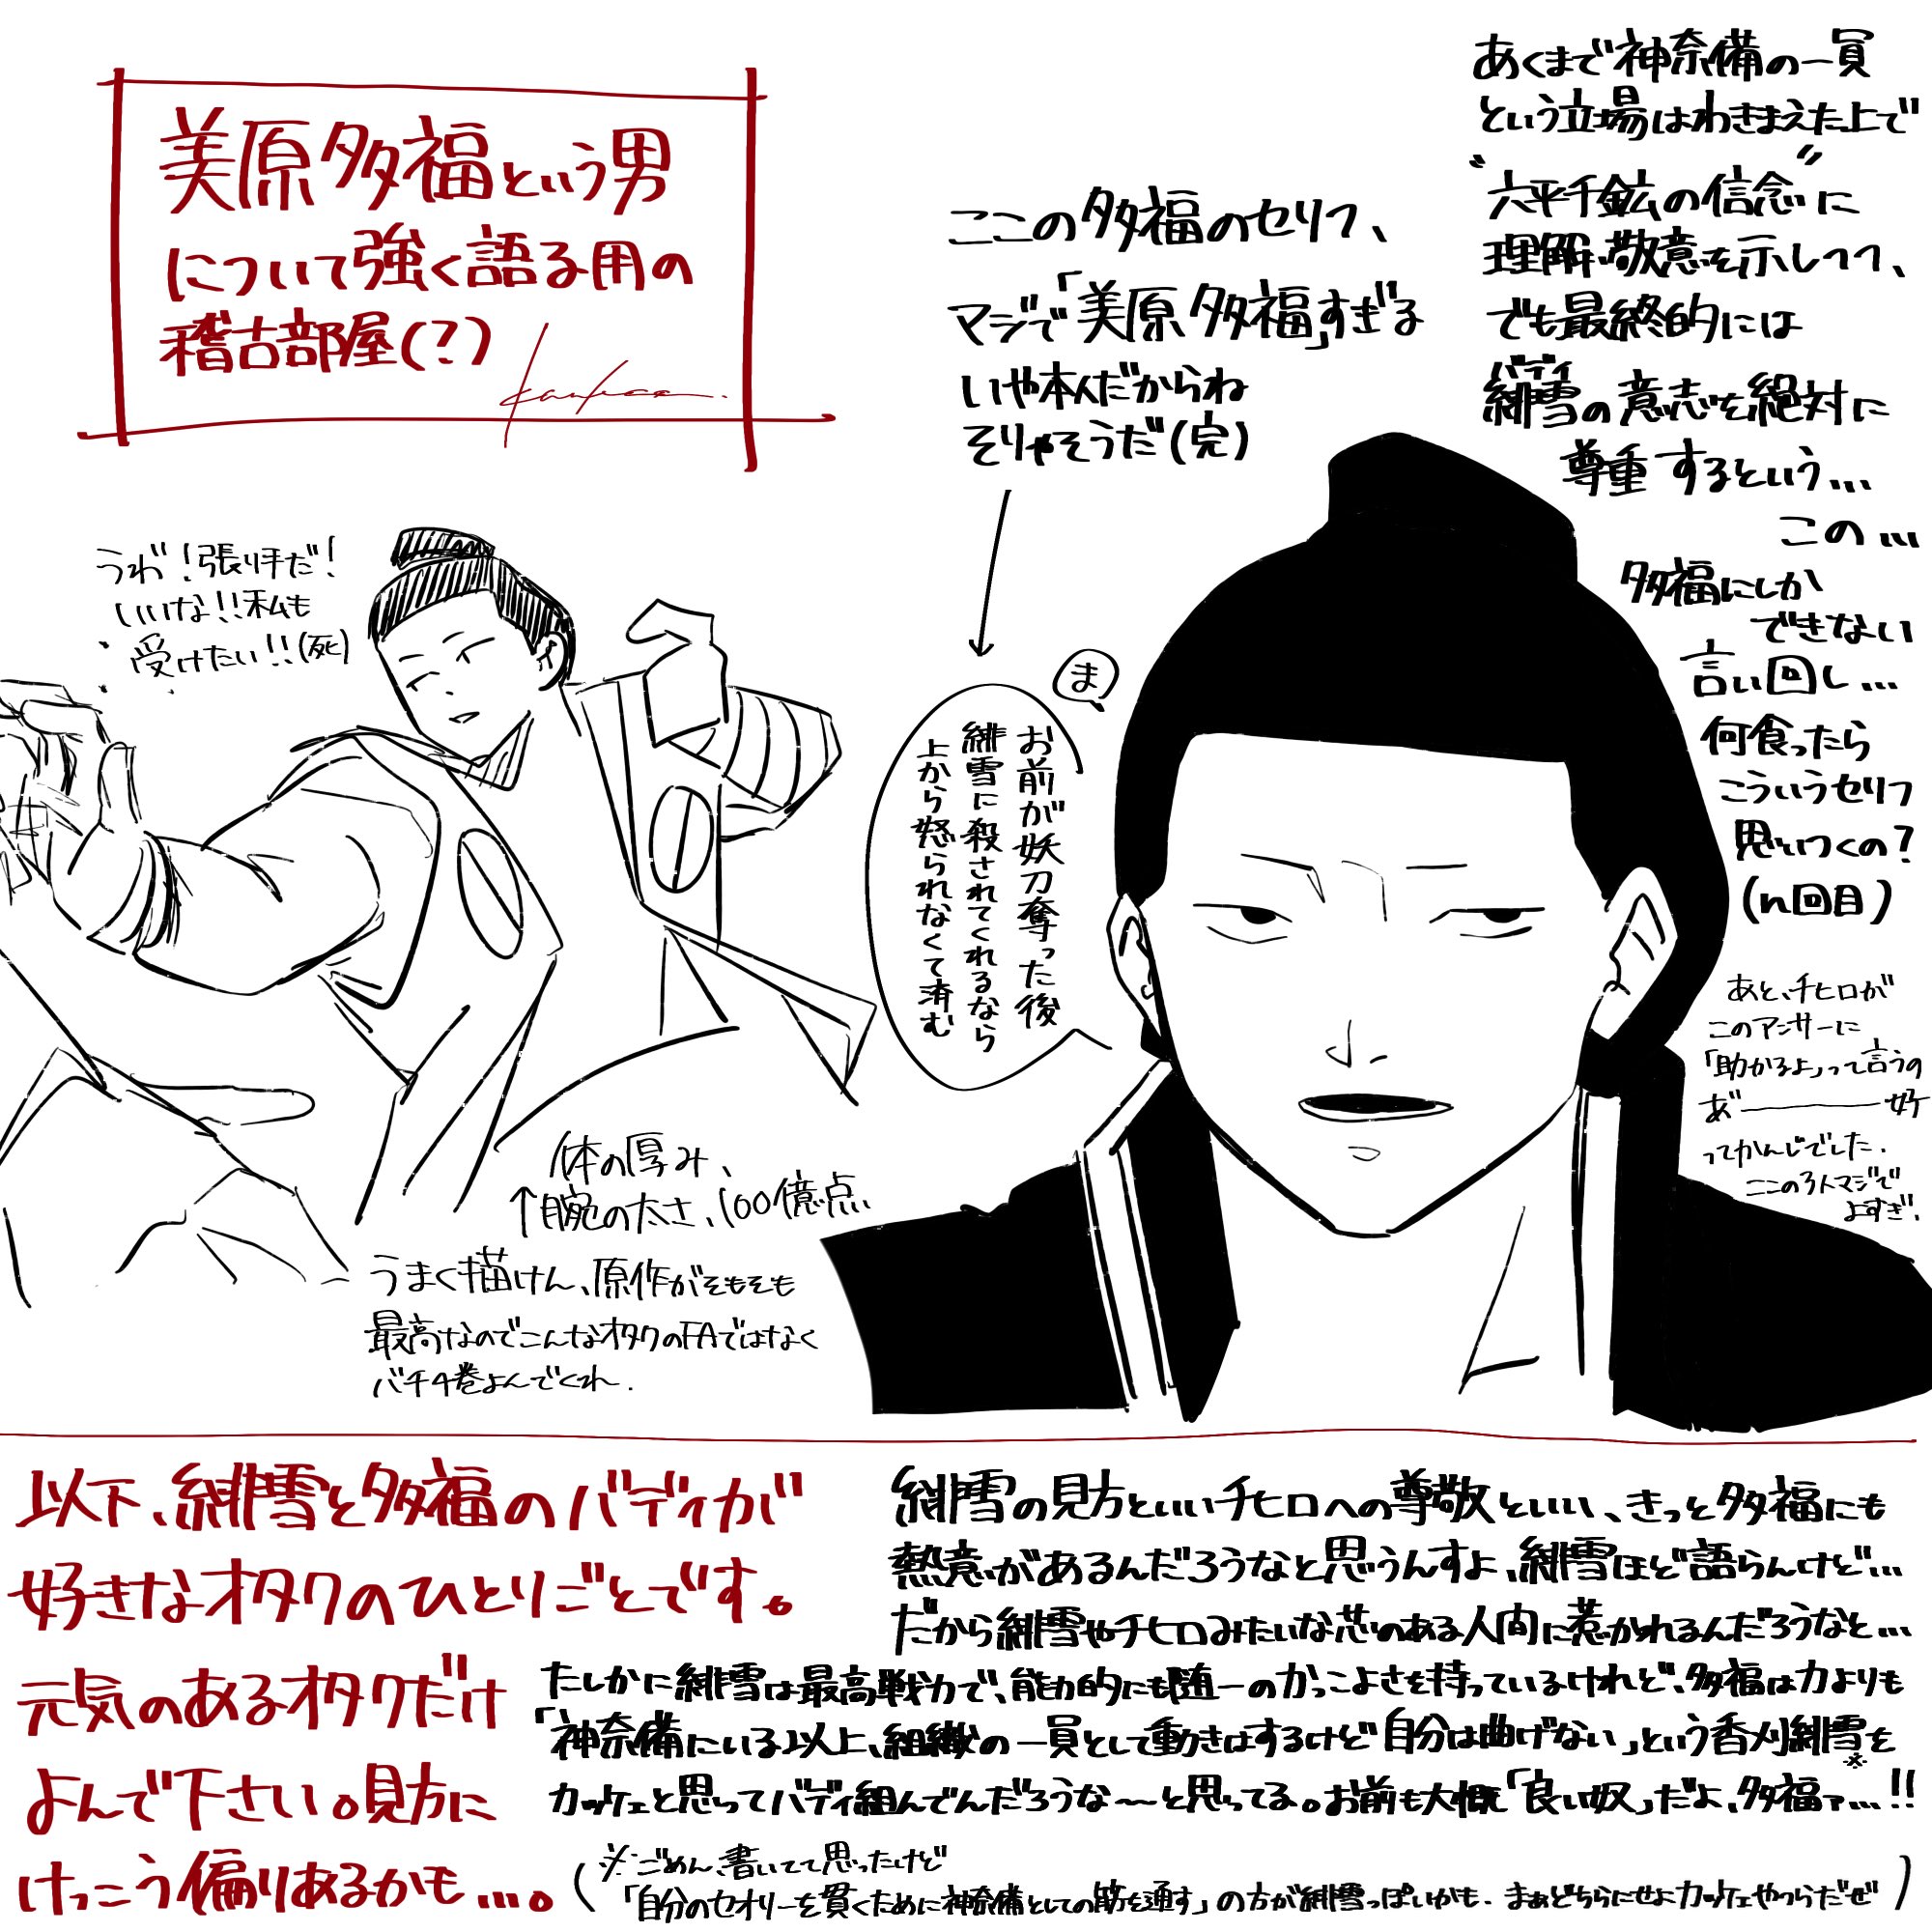 美原多福という男
について強く語る用の
稽古部屋(?)
あくまで神奈備の一員
という立場はわきまえた上で
“六平千鉱の信念”に
理解・敬意を示しつつ、
でも最終的には
バディ
緋雪の意志を絶対に
尊重するという…
この…
多福にしか
できない
言い回し…
何食ったら
こういうセリフ
思いつくの?
(n回目)
ここの多福のセリフ、
マジで「美原多福」すぎる
いや本人だからね
そりゃそうだ(完)
うわ!張り手だ!
いいな!!私も
受けたい!!(死)
ま
お前が妖刀奪った後
緋雪に殺されてくれるなら
上から怒られなくて済む
あと、チヒロが
このアンサーに
「助かるよ」って言うの
あ゛ーーー好
ってかんじでした.
ここの3人マジで
よすぎ.
体の厚み、
↑腕の太さ、100億点
うまく描けん、原作がそもそも
最高なのでこんなオタクのFAではなく
バチ4巻よんでくれ.
以下、緋雪と多福のバディが
好きなオタクのひとりごとです。
元気のあるオタクだけ
よんで下さい。見方に
けっこう偏りあるかも…。
緋雪の見方といいチヒロへの尊敬といい、きっと多福にも
熱意があるんだろうなと思うんすよ、緋雪ほど語らんけど…
だから緋雪やチヒロみたいな芯のある人間に惹かれるんだろうなと…
たしかに緋雪は最高戦力で、能力的にも随一のかっこよさを持っているけれど、多福は力よりも
「神奈備にいる以上、組織の一員として動きはするけど自分は曲げない」という香刈緋雪を
※
カッケェと思ってバディ組んでんだろうな〜〜と思ってる。お前も大概「良い奴」だよ、多福ァ…!!
(※ごめん、書いてて思ったけど
「自分のセオリーを貫くために神奈備としての筋を通す」の方が緋雪っぽいかも. まぁどちらにせよカッケェやつらだぜ)